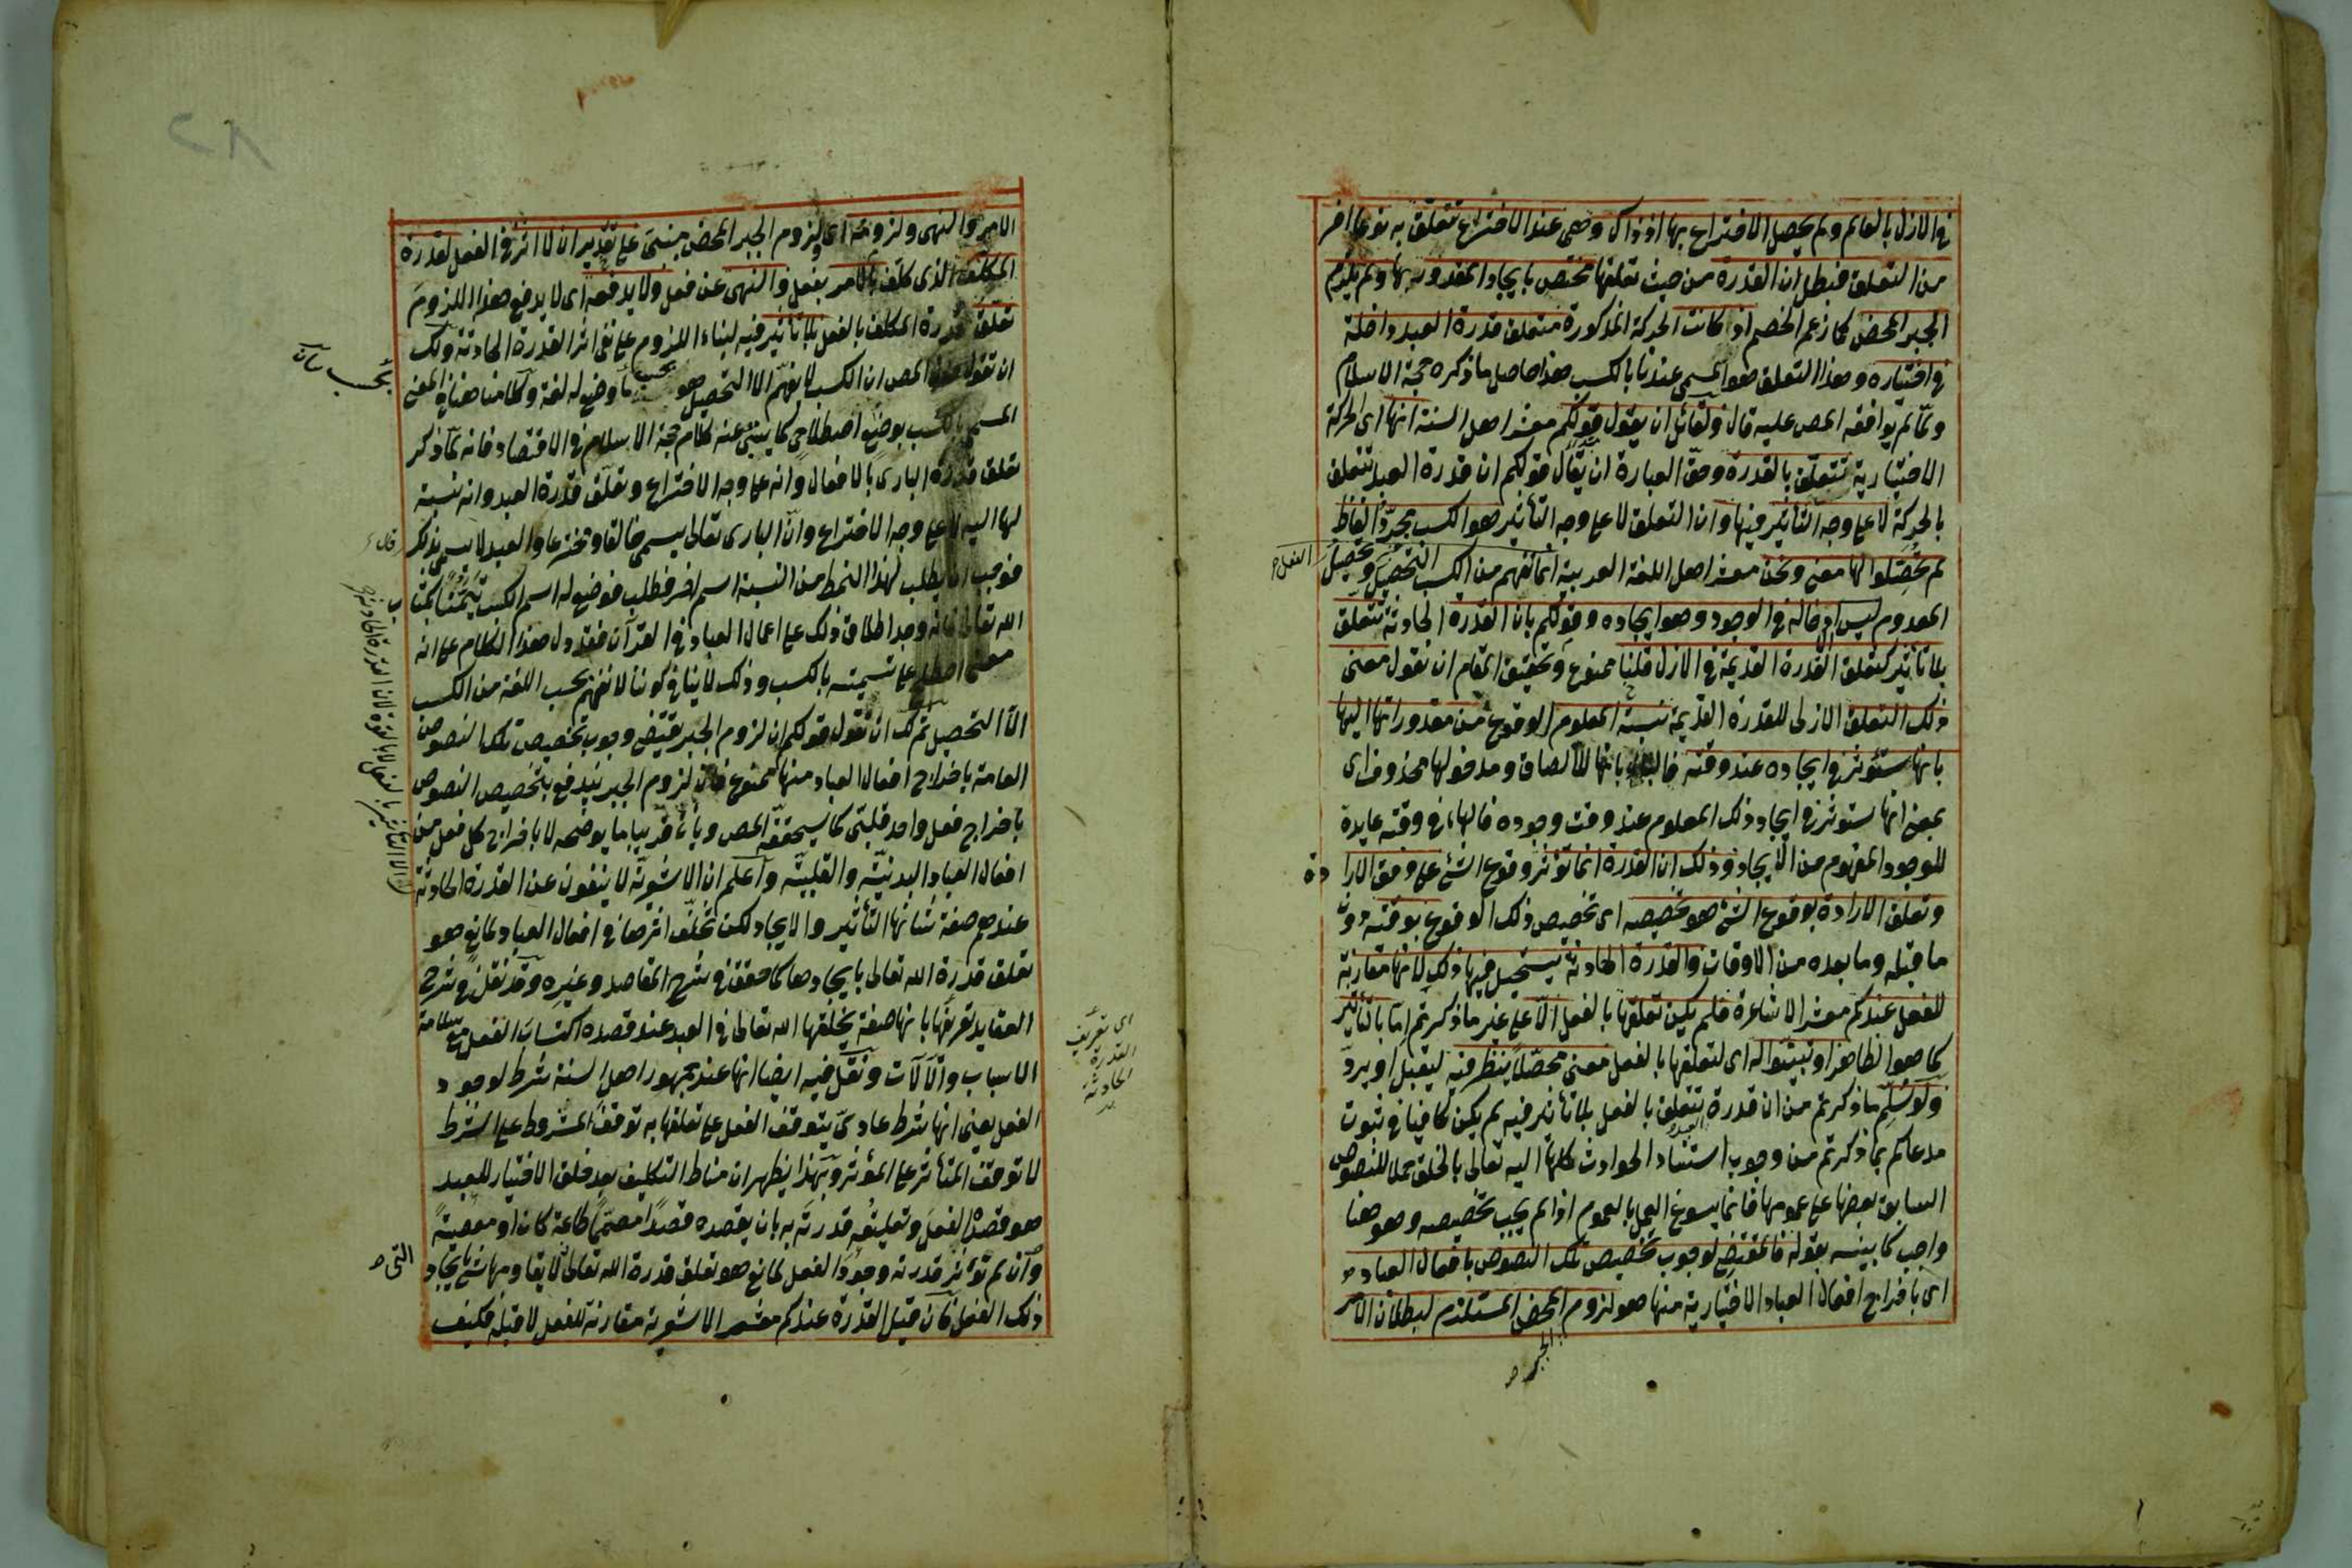 في الازل بالعالم ولم يحصل الاختراع بها اذ ذاك وهي عند الاختراع تتعلق به نوعا اخر
من التعلق فبطل ان القدرة من حيث تعلقها مختص بايجاد المقدور بها ولم يلزم
الجبر المحض كما زعم الخصم اذ كانت الحركة المذكورة متعلق قدرة العبد داخلة
في اختياره وهذا التعلق هو المسمى عندنا بالكسب هذا حاصل ما ذكره حجة الاسلام
ولما لم يوافقه المص عليه قال ولقائل ان يقول قولكم معشر اهل السنة انها اى الحركة
الاختيارية تتعلق بالقدرة وحق العبارة ان يقال قولكم ان قدرة العبد تتعلق
بالحركة لا على وجه التأثير فيها وان التعلق لا على وجه التأثير هو الكسب مجرد الفاظ
لم تحصلوا لها معنى ونحن معشر اهل اللغة العربية انما نفهم من الكسب التحصيل وتحصيل الفعل
المعدوم ليس الا ادخاله في الوجود وهو ايجاده وقولكم بان القدرة الحادثة تتعلق
بلا تأثير كتعلق القدرة القديمة في الازل قلنا ممنوع وتحقيق المقام ان نقول معنى
ذلك التعلق الازلى للقدرة القديمة نسبة المعلوم الوقوع من مقدوراتها اليها
بانها ستؤثر في ايجاده عند وقته فالباء بانها للالصاق ومدخولها محذوف اى
بمعنى انها ستؤثر في ايجاد ذلك المعلوم عند وقت وجوده فالهاء في وقته عايدة
للوجود المفهوم من الايجاد وذلك ان القدرة انما تؤثر وقوع الشئ على وفق الارادة
وتعلق الارادة بوقوع الشئ هو تخصيصه اى تخصيص ذلك الوقوع بوقته دون
ما قبله وما بعده من الاوقات والقدرة الحادثة يستحيل فيها ذلك لانها مقارنة
للفعل عندكم معشر الاشاعرة فلم يكن تعلقها بالفعل الا على غير ما ذكرتم اما بالتأثير
كما هو الظاهر او تبينوا له اى لتعلقها بالفعل معنى محصلا ينظر فيه ليقبل او يرد
ولو سلم ما ذكرتم من ان قدرة العبد تتعلق بالفعل بلا تأثير فيه لم يكن كافيا في ثبوت
مدعاكم بما ذكرتم من وجوب استناد الحوادث كلها اليه تعالى بالخلق عملا للنصوص
السابق بعضها على عمومها فانما يسوغ العمل بالعموم اذا لم يجب تخصيصه وهو هنا
واجب كما بينه بقوله فالمقتضى لوجوب تخصيص تلك النصوص بافعال العباد
اى باخراج افعال العباد الاختيارية منها هو لزوم الجبر المحض المستلزم لبطلان الامر
الامر والنهى ولزومه اى لزوم الجبر المحض مبنى على تقدير ان لا اثر في الفعل لقدرة
المكلف الذى كلف بالامر بفعل والنهى عن فعل ولا يدفعه اى لا يدفع هذا اللزوم
تعلق قدرة المكلف بالفعل بلا تأثير فيه لبناء اللزوم على نفى اثر القدرة الحادثة ولك
ان تقول عنى المص ان الكسب لا يفهم الا التحصيل هو بحسب ما وضع له لغة وكلامنا هنا في المعنى
المسمى بالكسب بوضع اصطلاحى كما ينبئ عنه كلام حجة الاسلام في الاقتصاد فانه لما ذكر
تعلق قدرة البارى بالافعال وانه على وجه الاختراع وتعلق قدرة العبد وانه نسبة
لها اليه لا على وجه الاختراع وان البارى تعالى يسمى خالقا ومخترعا والعبد لا يسمى بذلك قال
فوجب ان يطلب لهذا النمط من النسبة اسم اخر فطلب فوضع له اسم الكسب تيمنا بكتاب
الله تعالى فانه وجد اطلاق ذلك على اعمال العباد في القرآن فقد دل هذا الكلام على انه
معنى اصطلح على تسميته بالكسب وذلك لا ينافى كوننا لا نفهم بحسب اللغة من الكسب
الا التحصيل ثم لك ان تقول قولكم ان لزوم الجبر يقتضى وجوب تخصيص تلك النصوص
العامة باخراج افعال العباد منها ممنوع فان لزوم الجبر يندفع بتخصيص النصوص
باخراج فعل واحد قلبى كما سيحققه المص ويأتى قريبا ما يوضحه لا باخراج كل فعل من
افعال العباد البدنية والقلبية واعلم ان الاشعرية لا ينفون عن القدرة الحادثة
عندهم صفة شانها التأثير والايجاد لكن تخلف اثرها في افعال العباد لمانع هو
تعلق قدرة الله تعالى بايجادها كما حقق في شرح المقاصد وغيره وقد نقل في شرح
العقايد تعريفها بانها صفة يخلقها الله تعالى في العبد عند قصده اكتساب الفعل مع سلامة
الاسباب والآلات ونقل فيه ايضا انها عند جمهور اهل السنة شرط لوجود
الفعل يعنى انها شرط عادى يتوقف الفعل على تعلقها به توقف المشروط على الشرط
لا توقف المتأثر على المؤثر وبهذا يظهر ان مناط التكليف بعد خلق الاختيار للعبد
هو قصده الفعل وتعليقه قدرته به بان يقصده قصدا مصمما طاعة كان او معصية
وان لم تؤثر قدرته وجود الفعل لمانع هو تعلق قدرة الله تعالى التى لا يقاومها شئ بايجاد
ذلك الفعل فان قيل القدرة عندكم معشر الاشعرية مقارنة للفعل لا قبله فكيف
اى تعريف
القدرة
الحادثة